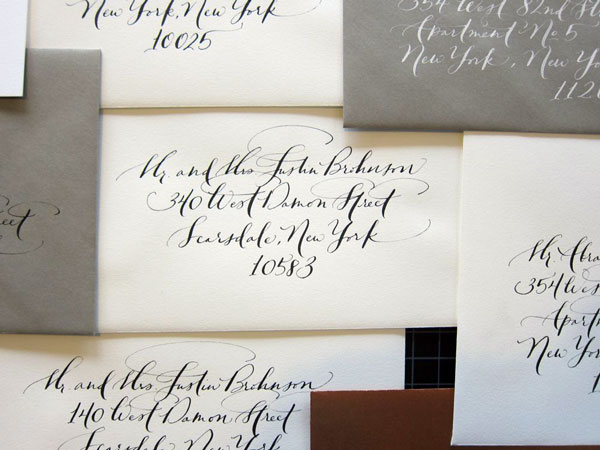 New York, New York
10025
354 West 82nd St
Apartment No 5
New York, New Yor
112
Mr and Mrs Justin Brohnson
340 West Damon Street
Scarsdale, New York
10583
reet
Mr Abra
354 Wes
Apartm
New York
Mr and Mrs Justin Brohnson
140 West Damon Street
Scarsdale, New York